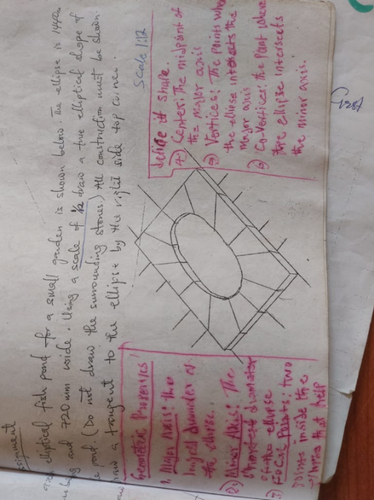 elliptical fish pond for a small garden is shown below. The ellipse is 1440
long and 720 mm wide. Using a scale of 1/12 draw a true elliptical shape of
pond (Do not draw the surrounding stones) All construction must be shown
a tangent to the ellipse by the right side top corner.
Scale 1:12
Geometric Parameters:
1. Major Axis: The
longest diameter of
the ellipse.
2) Minor Axis: The
Shortest diameter
of the ellipse
3) Focal Points: two
points inside the
that help
define it shape.
4) Center: The midpoint of
the major axis
5) Vertices: The points where
the ellipse intersects the
major axis
6) Co-Vertices: the point where
the ellipse intersects
the minor axis.